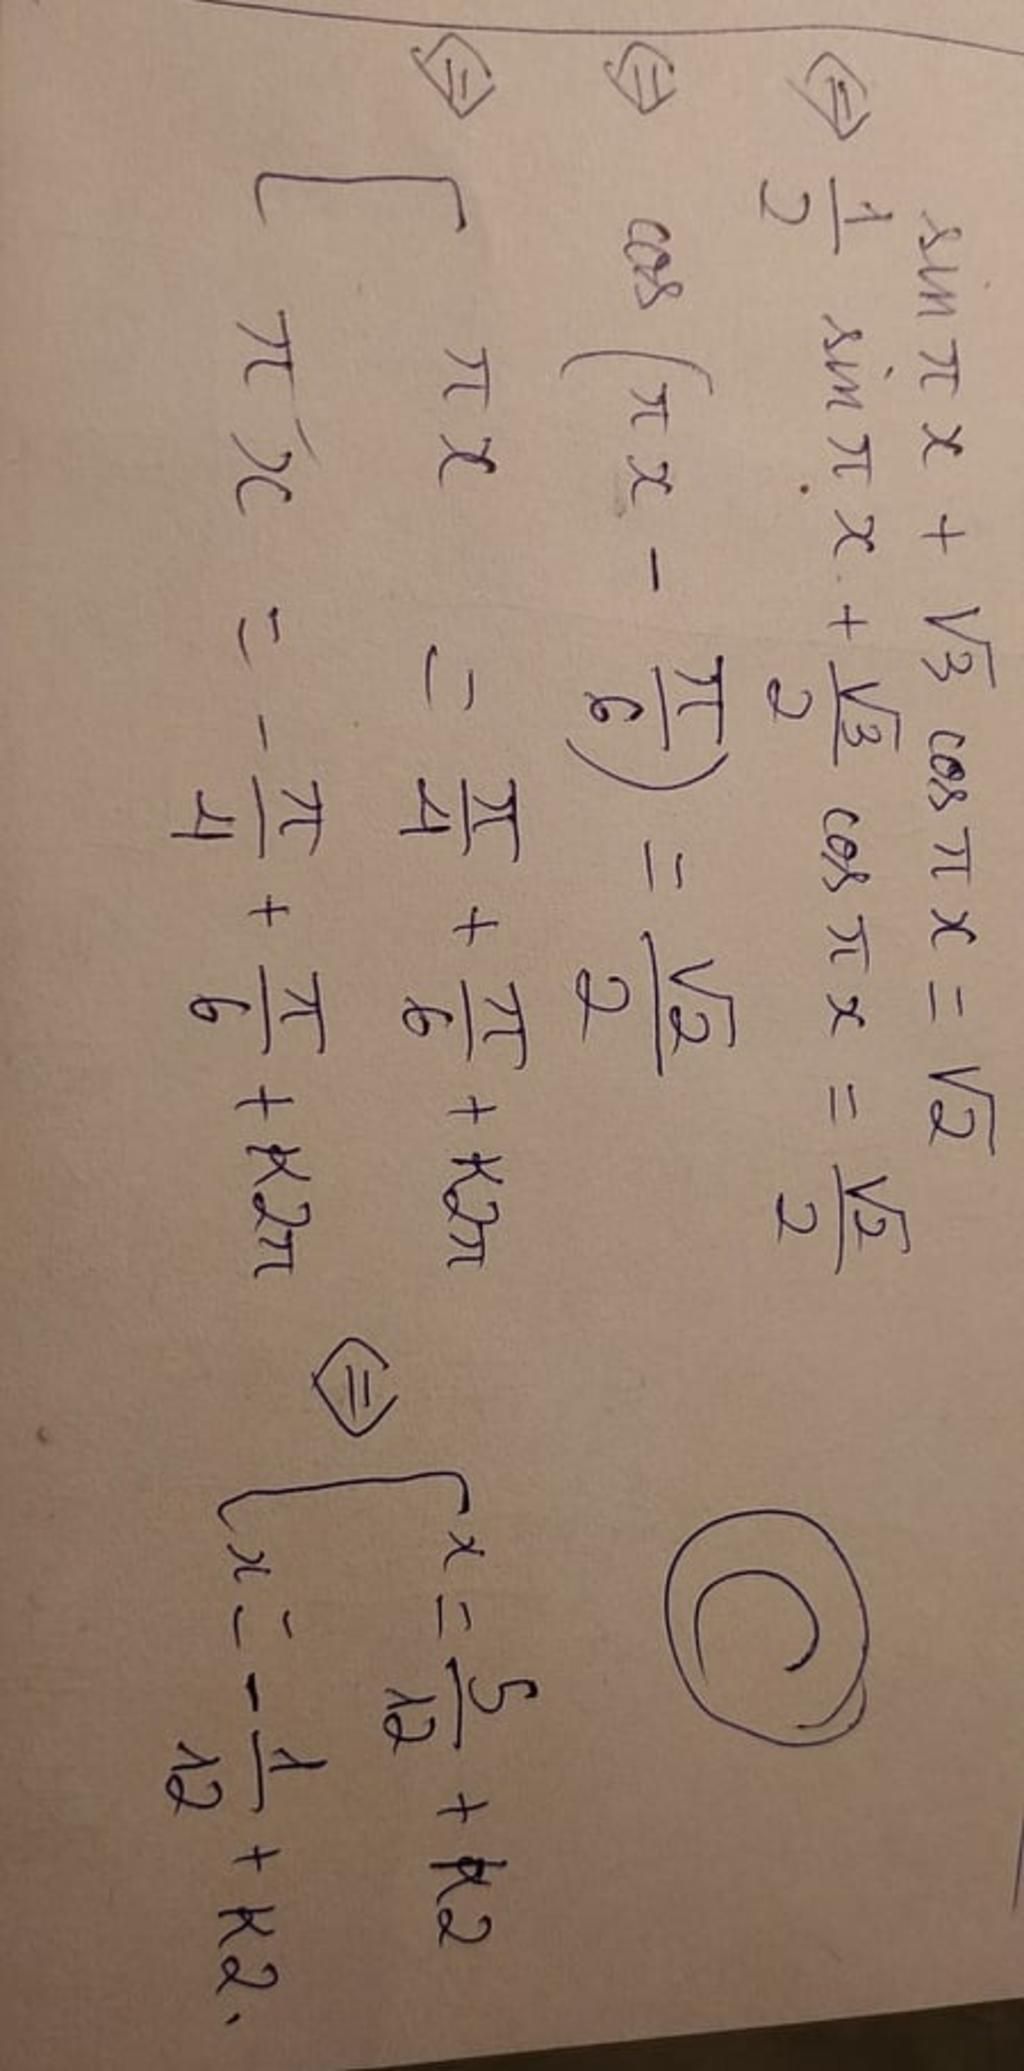 sin πx + √3 cos πx = √2
⇔ 1/2 sin πx + √3/2 cos πx = √2/2
⇔ cos (πx - π/6) = √2/2
C
⇔ [ πx = π/4 + π/6 + k2π
πx = -π/4 + π/6 + k2π
⇔ [ x = 5/12 + k2
x = -1/12 + k2.